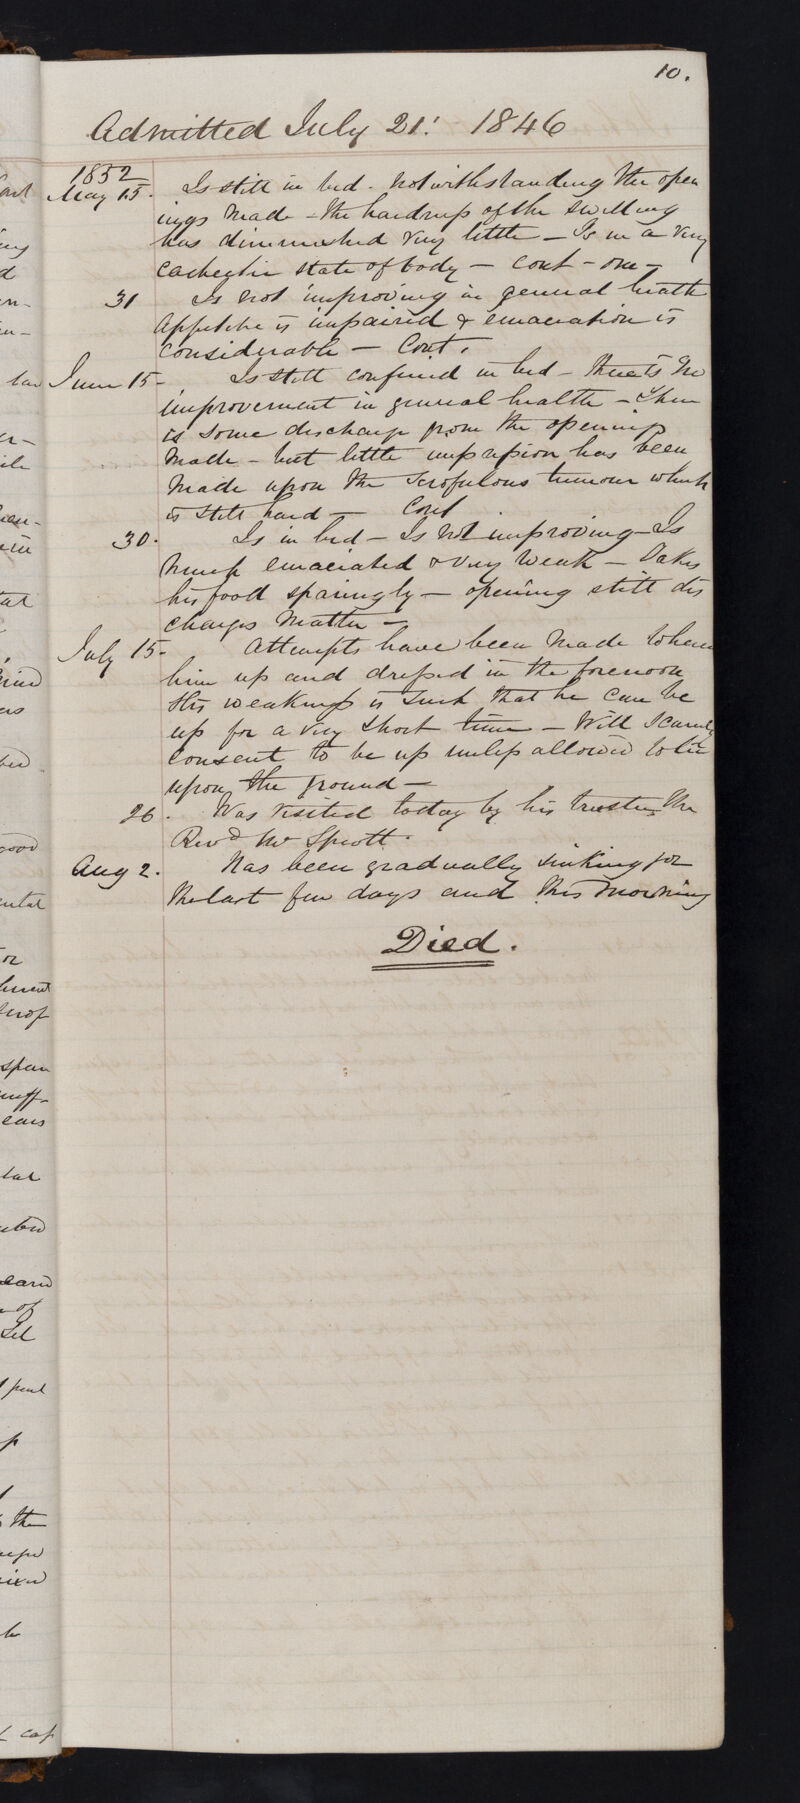 10.
Admitted July 21: 1846
1852
May 15. Is still in bed - notwithstanding the open
ings made - the hardness of the swelling
has diminished very little - Is in a very
cachectic state of body - Cont - one -
31 Is not improving in general health
Appetite is impaired & emaciation is
considerable - Cont.
June 15 - Is still confined in bed - there is no
improvement in general health - There
is some discharge from the openings
made - but little impression has been
made upon the scrofulous tumour which
is still hard - Cont
30. Is in bed - Is not improving - Is
much emaciated & very weak - Takes
his food sparingly - opening still dis
charges matter -
July 15 - Attempts have been made to have
him up and dressed in the forenoon
His weakness is such that he can be
up for a very short time - Will scarcely
consent to be up unless allowed to lie
upon the ground -
26. Was visited today by his trustee the
Revd Mr Sprott.
Aug 2. Has been gradually sinking for
the last few days and this morning
Died.